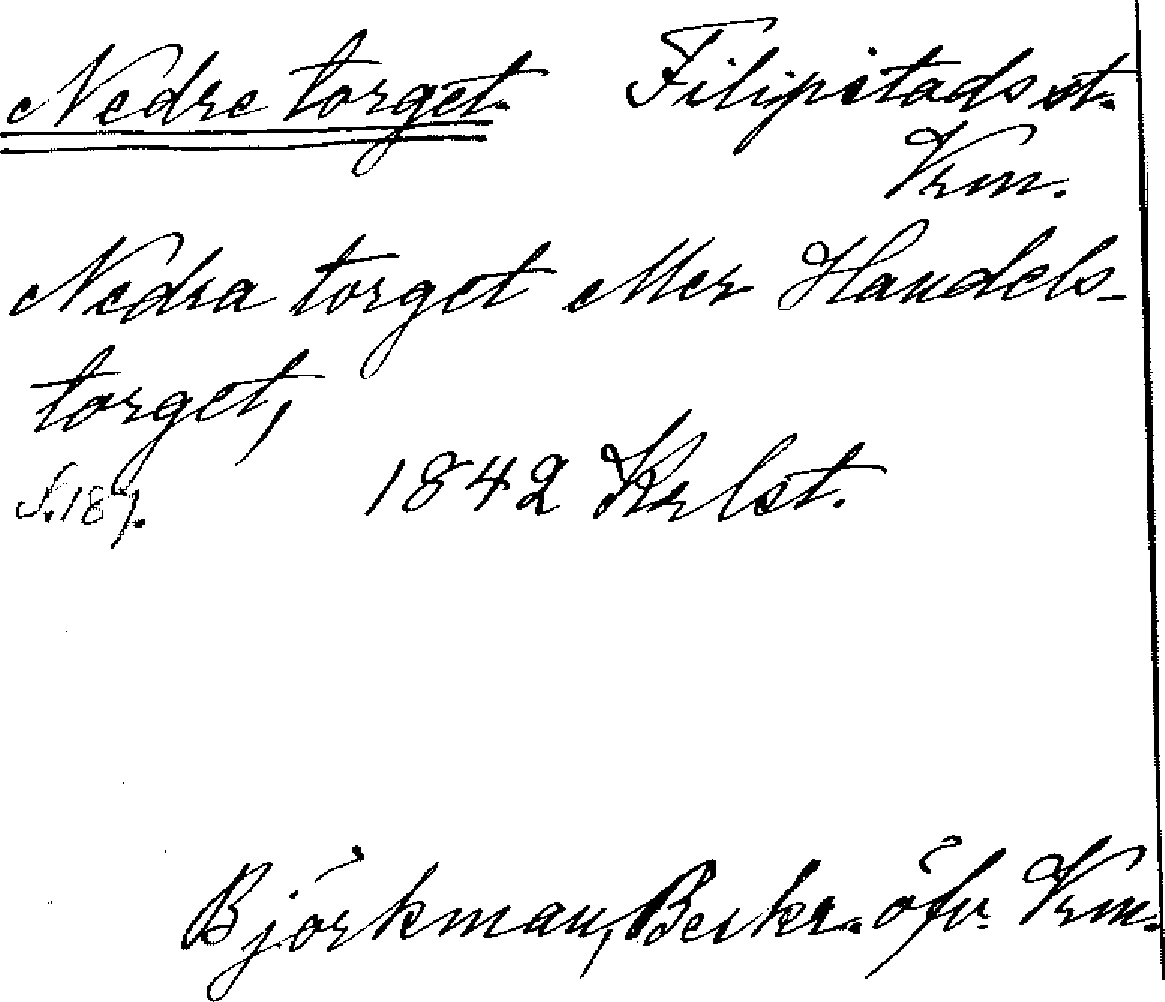 Nedre torget. Filipstads st.
Vrm.
Nedra torget eller Handels-
torget,
S. 187. 1842 Krlst.
Björkman, Beskr. öfv. Vrm.